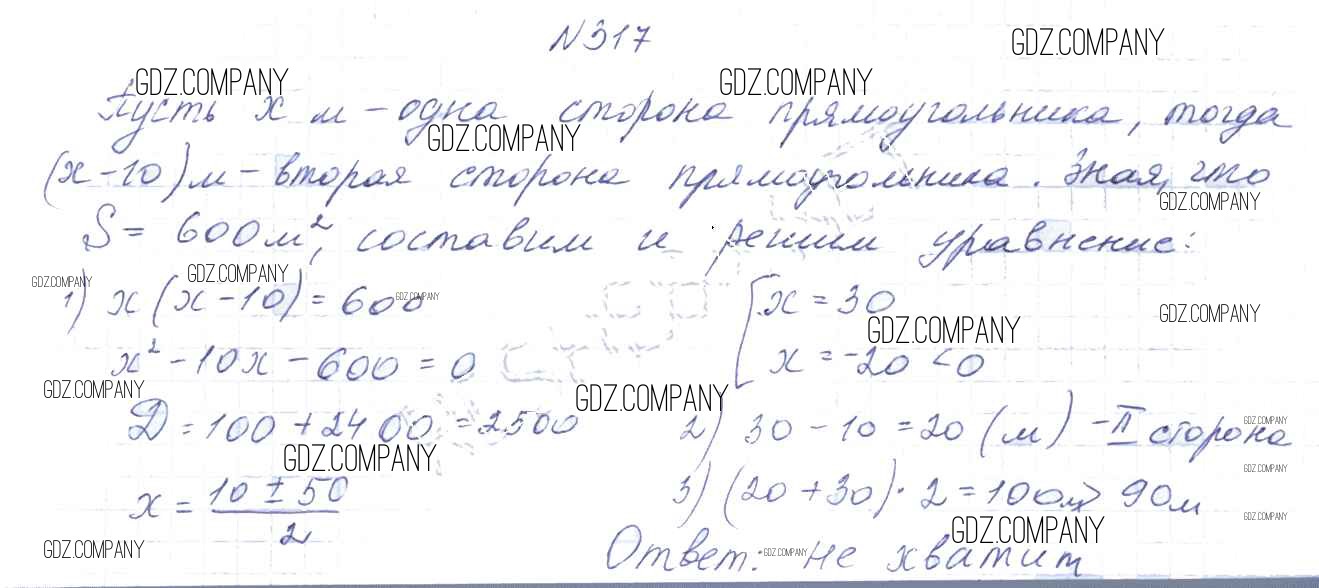 N317
GDZ.COMPANY
GDZ.COMPANY GDZ.COMPANY
Пусть x м - одна сторона прямоугольника, тогда
GDZ.COMPANY
(x-10)м - вторая сторона прямоугольника. Зная, что
GDZ.COMPANY
S = 600м², составим и решим уравнение:
GDZ.COMPANY GDZ.COMPANY
1) x(x-10) = 600 GDZ.COMPANY
[x = 30
GDZ.COMPANY GDZ.COMPANY
x² - 10x - 600 = 0
x = -20 < 0
GDZ.COMPANY GDZ.COMPANY
D = 100 + 2400 = 2500
2) 30 - 10 = 20 (м) - II сторона
GDZ.COMPANY
GDZ.COMPANY GDZ.COMPANY
x = (10 ± 50)/2
3) (20 + 30) · 2 = 100м > 90м
GDZ.COMPANY GDZ.COMPANY
GDZ.COMPANY GDZ.COMPANY
Ответ: не хватит